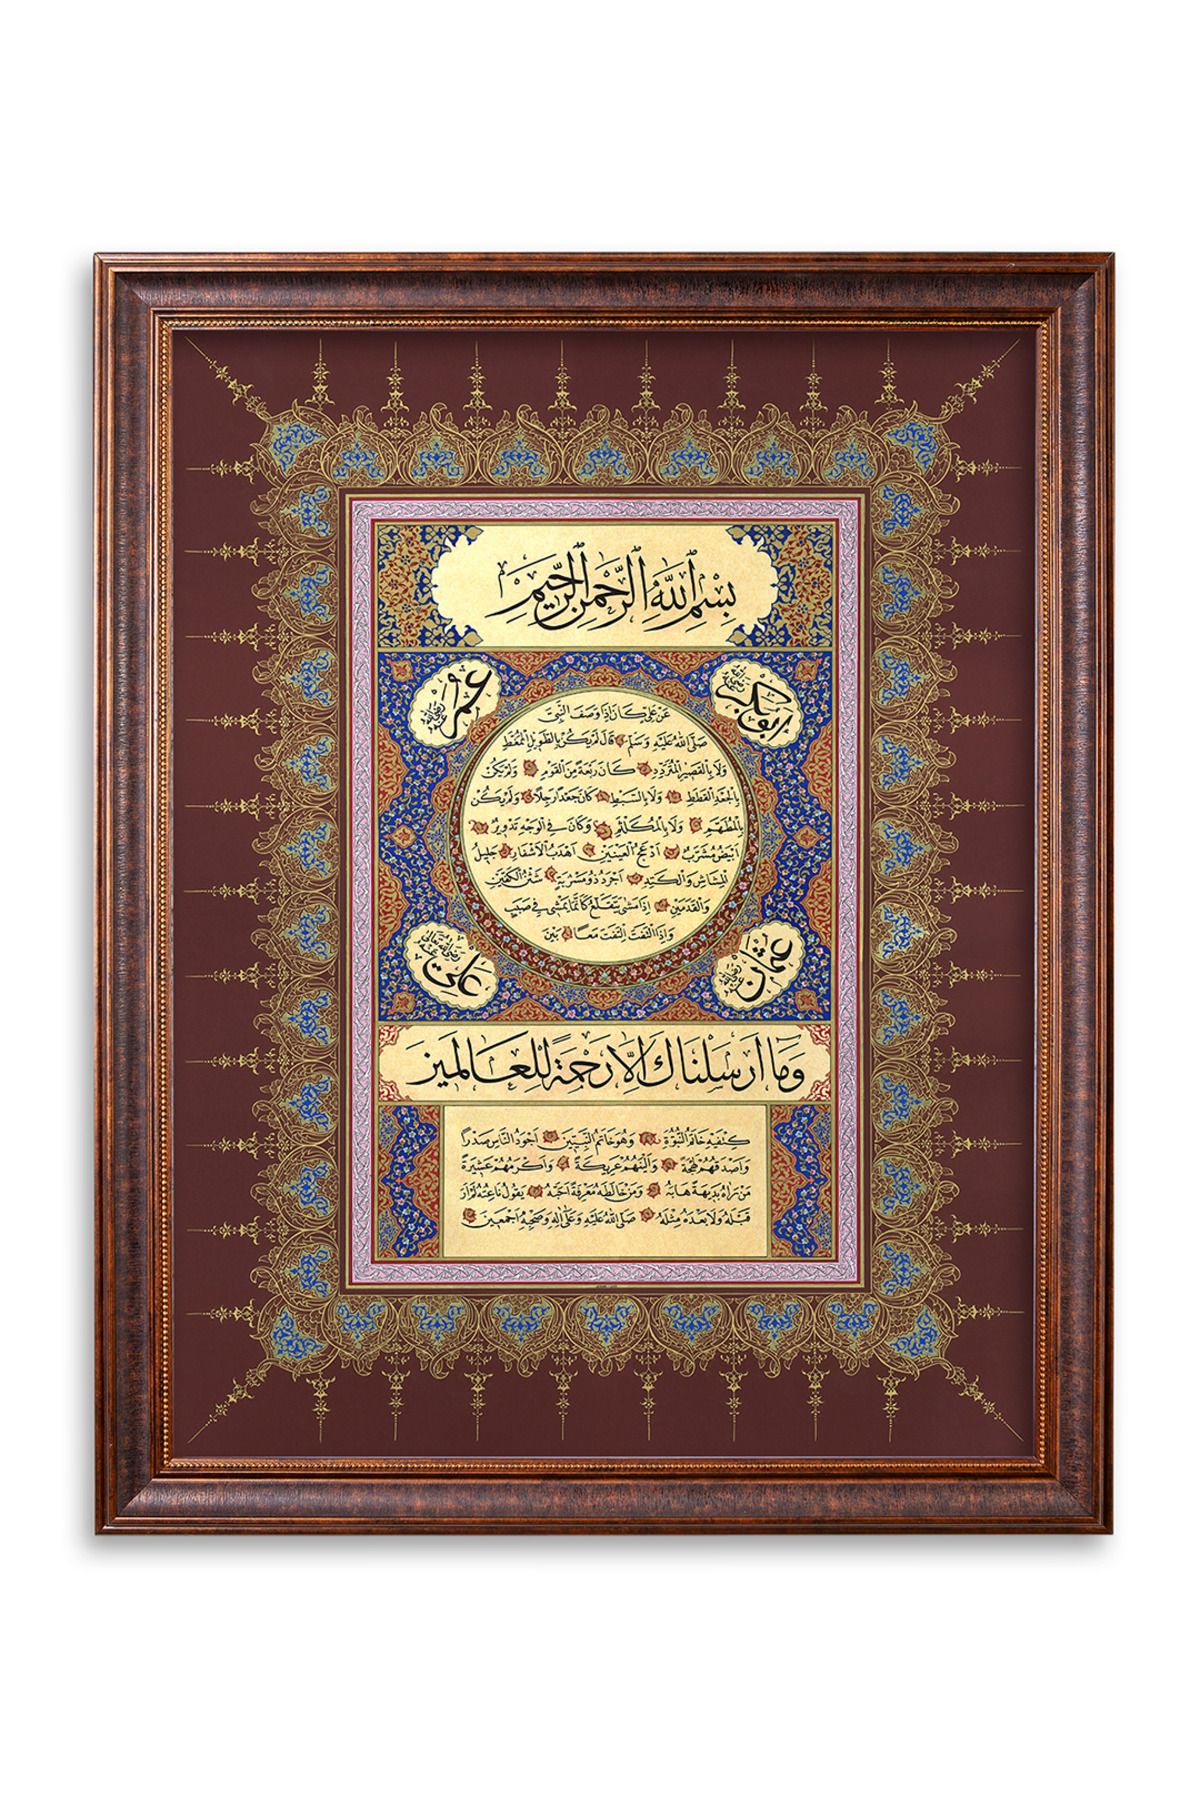 بِسْمِ ٱللّٰهِ ٱلرَّحْمٰنِ ٱلرَّحِيمِ
ابوبكر رضى الله عنه
عمر رضى الله عنه
عَنْ عَلِىٍّ كَانَ اِذَا وَصَفَ النَّبِىَّ
صَلَّى اللّٰهُ عَلَيْهِ وَسَلَّمَ قَالَ لَمْ يَكُنْ بِالطَّوِيلِ الْمُمَّغِطِ
وَلَا بِالْقَصِيرِ الْمُتَرَدِّدِ كَانَ رَبْعَةً مِنَ الْقَوْمِ وَلَمْ يَكُنْ
بِالْجَعْدِ الْقَطَطِ وَلَا بِالسَّبِطِ كَانَ جَعْدًا رَجِلًا وَلَمْ يَكُنْ
بِالْمُطَهَّمِ وَلَا بِالْمُكَلْثَمِ وَكَانَ فِى الْوَجْهِ تَدْوِيرٌ
اَبْيَضُ مُشْرَبٌ اَدْعَجُ الْعَيْنَيْنِ اَهْدَبُ الْاَشْفَارِ جَلِيلُ
الْمُشَاشِ وَالْكَتَدِ اَجْرَدُ ذُو مَسْرُبَةٍ شَثْنُ الْكَفَّيْنِ
وَالْقَدَمَيْنِ اِذَا مَشٰى يَتَقَلَّعُ كَاَنَّمَا يَمْشِى فِى صَبَبٍ
وَاِذَا الْتَفَتَ اِلْتَفَتَ مَعًا بَيْنَ
عثمان رضى الله عنه
على رضى الله تعالى عنه
وَمَا اَرْسَلْنَاكَ اِلَّا رَحْمَةً لِلْعَالَمِينَ
كَتِفَيْهِ خَاتَمُ النُّبُوَّةِ وَهُوَ خَاتَمُ النَّبِيِّينَ اَجْوَدُ النَّاسِ صَدْرًا
وَاَصْدَقُهُمْ لَهْجَةً وَاَلْيَنُهُمْ عَرِيكَةً وَاَكْرَمُهُمْ عَشِيرَةً
مَنْ رَاٰهُ بَدِيهَةً هَابَهُ وَمَنْ خَالَطَهُ مَعْرِفَةً اَحَبَّهُ يَقُولُ نَاعِتُهُ لَمْ اَرَ
قَبْلَهُ وَلَا بَعْدَهُ مِثْلَهُ صَلَّى اللّٰهُ عَلَيْهِ وَعَلٰى اٰلِهِ وَصَحْبِهِ اَجْمَعِينَ